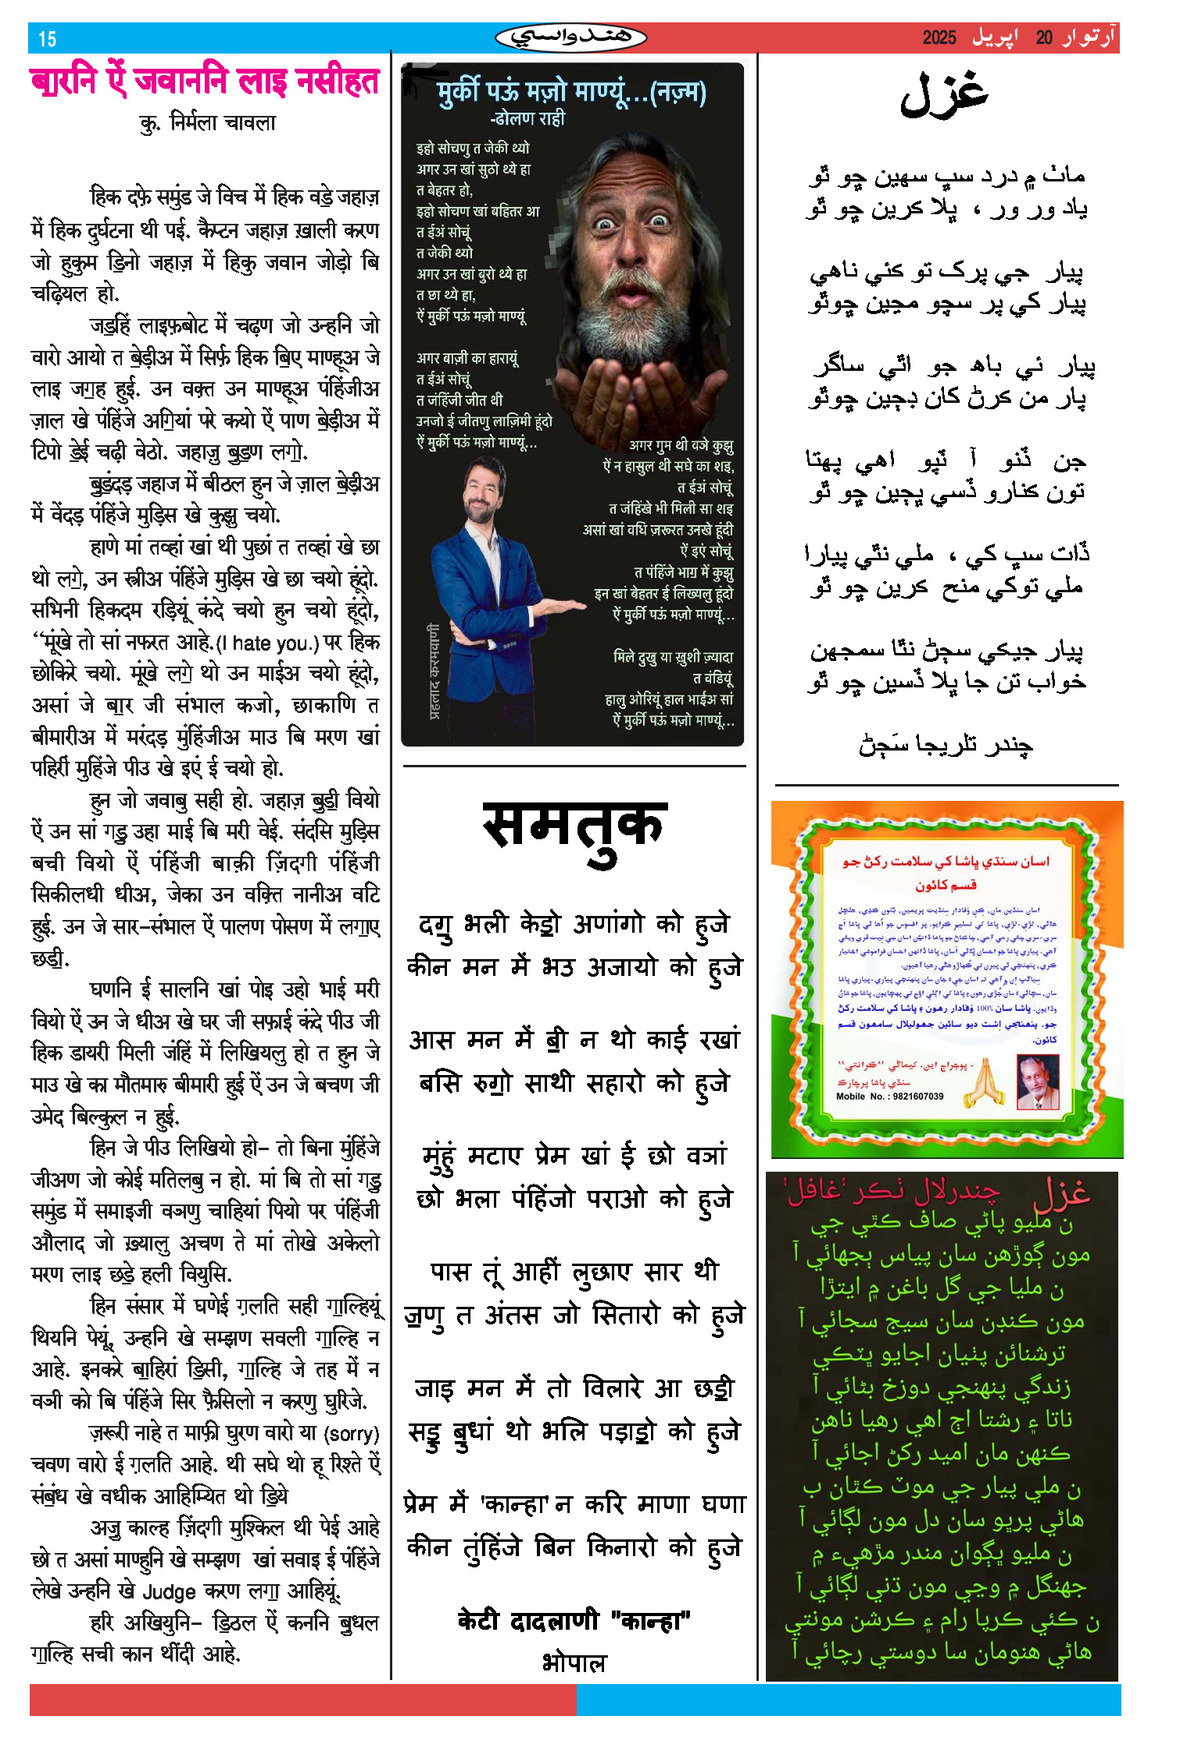 15
هندواسي
آرتوار 20 اپريل 2025
बा॒रनि ऐं जवाननि लाइ नसीहत
कु. निर्मला चावला
हिक दफ़े समुंड जे विच में हिक वडे॒ जहाज़
में हिक दुर्घटना थी पई. कैप्टन जहाज़ ख़ाली करण
जो हुकुम डि॒नो जहाज़ में हिकु जवान जोड़ो बि
चढ़ियल हो.
जड॒हिं लाइफ़बोट में चढ़ण जो उन्हनि जो
वारो आयो त बे॒ड़ीअ में सिर्फ़ हिक बि॒ए माण्हूअ जे
लाइ जग॒ह हुई. उन वक़्त उन माण्हूअ पंहिंजीअ
ज़ाल खे पंहिंजे अगि॒यां परे कयो ऐं पाण बे॒ड़ीअ में
टिपो डे॒ई चढ़ी वेठो. जहाजु बुड॒ण लगो॒.
बु॒डंदड़ जहाज में बीठल हुन जे ज़ाल बे॒ड़ीअ
में वेंदड़ पंहिंजे मुड़िस खे कुझु चयो.
हाणे मां तव्हां खां थी पुछां त तव्हां खे छा
थो लगे॒, उन स्त्रीअ पंहिंजे मुड़िस खे छा चयो हूंदो.
सभिनी हिकदम रड़ियूं कंदे चयो हुन चयो हूंदो,
“मूंखे तो सां नफरत आहे.(I hate you.) पर हिक
छोकिरे चयो. मूंखे लगे॒ थो उन माईअ चयो हूंदो,
असां जे बा॒र जी संभाल कजो, छाकाणि त
बीमारीअ में मरंदड़ मुंहिंजीअ माउ बि मरण खां
पहिरीं मुहिंजे पीउ खे इएं ई चयो हो.
हुन जो जवाबु सही हो. जहाज़ बुडी॒ वियो
ऐं उन सां गडु॒ उहा माई बि मरी वेई. संदसि मुड़िस
बची वियो ऐं पंहिंजी बाक़ी ज़िंदगी पंहिंजी
सिकीलधी धीअ, जेका उन वक़्ति नानीअ वटि
हुई. उन जे सार-संभाल ऐं पालण पोसण में लगा॒ए
छडी॒.
घणनि ई सालनि खां पोइ उहो भाई मरी
वियो ऐं उन जे धीअ खे घर जी सफ़ाई कंदे पीउ जी
हिक डायरी मिली जंहिं में लिखियलु हो त हुन जे
माउ खे का मौतमारु बीमारी हुई ऐं उन जे बचण जी
उमेद बिल्कुल न हुई.
हिन जे पीउ लिखियो हो- तो बिना मुंहिंजे
जीअण जो कोई मतिलबु न हो. मां बि तो सां गडु॒
समुंड में समाइजी वञणु चाहियां पियो पर पंहिंजी
औलाद जो ख़्यालु अचण ते मां तोखे अकेलो
मरण लाइ छडे॒ हली वियुसि.
हिन संसार में घणेई ग़लति सही गा॒ल्हियूं
थियनि पेयूं, उन्हनि खे सम्झण सवली गा॒ल्हि न
आहे. इनकरे बा॒हिरां डि॒सी, गा॒ल्हि जे तह में न
वञी को बि पंहिंजे सिर फ़ैसिलो न करणु घुरिजे.
ज़रूरी नाहे त माफ़ी घुरण वारो या (sorry)
चवण वारो ई ग़लति आहे. थी सघे थो हू रिश्ते ऐं
संबं॒ध खे वधीक आहिम्यित थो डि॒ये
अजु काल्ह ज़िंदगी मुश्किल थी पेई आहे
छो त असां माण्हुनि खे सम्झण खां सवाइ ई पंहिंजे
लेखे उन्हनि खे Judge करण लगा॒ आहियूं.
हरि अखियुनि- डि॒ठल ऐं कननि बु॒धल
गा॒ल्हि सची कान थींदी आहे.
मुर्की पऊं मज़ो माण्यूं...(नज़्म)
-ढोलण राही
इहो सोचणु त जेकी थ्यो
अगर उन खां सुठो थ्ये हा
त बेहतर हो,
इहो सोचण खां बहितर आ
त ईअं सोचूं
त जेकी थ्यो
अगर उन खां बुरो थ्ये हा
त छा थ्ये हा,
ऐं मुर्की पऊं मज़ो माण्यूं
अगर बाज़ी का हारायूं
त ईअं सोचूं
त जंहिंजी जीत थी
उनजो ई जीतणु लाज़िमी हूंदो
ऐं मुर्की पऊं मज़ो माण्यूं...
अगर गुम थी वञे कुझु
ऐं न हासुल थी सघे का शइ,
त ईअं सोचूं
त जंहिंखे भी मिली सा शइ
असां खां वधि ज़रूरत उनखे हूंदी
ऐं इएं सोचूं
त पंहिंजे भाग॒ में कुझु
इन खां बेहतर ई लिख्यलु हूंदो
ऐं मुर्की पऊं मज़ो माण्यूं...
मिले दुखु या ख़ुशी ज़्यादा
त वंडियूं
हालु ओरियूं हाल भाईअ सां
ऐं मुर्की पऊं मज़ो माण्यूं...
प्रहलाद करमवाणी
समतुक
दगु॒ भली केडो॒ अणांगो को हुजे
कीन मन में भउ अजायो को हुजे
आस मन में बी॒ न थो काई रखां
बसि रुगो॒ साथी सहारो को हुजे
मुंहुं मटाए प्रेम खां ई छो वञां
छो भला पंहिंजो पराओ को हुजे
पास तूं आहीं लुछाए सार थी
ज॒णु त अंतस जो सितारो को हुजे
जाइ मन में तो विलारे आ छडी॒
सडु॒ बु॒धां थो भलि पड़ाडो॒ को हुजे
प्रेम में 'कान्हा' न करि माणा घणा
कीन तुंहिंजे बिन किनारो को हुजे
केटी दादलाणी "कान्हा"
भोपाल
غزل
ماٺ ۾ درد سڀ سهين ڇو ٿو
ياد ور ور ، ڀلا ڪرين ڇو ٿو
پيار جي پرک تو ڪئي ناهي
پيار کي پر سچو مڃين ڇوٿو
پيار ئي باهه جو اٿي ساگر
پار من ڪرڻ کان ڊڄين ڇوٿو
جن ڏنو آ ٽٻو اهي پهتا
تون ڪنارو ڏسي ڀڄين ڇو ٿو
ڏات سڀ کي ، ملي نٿي پيارا
ملي توکي منح ڪرين ڇو ٿو
پيار جيڪي سڄڻ نٿا سمجهن
خواب تن جا ڀلا ڏسين ڇو ٿو
چندر تلريجا سَڄڻ
اسان سنڌي ڀاشا کي سلامت رکڻ جو
قسم کائون
جو. پنهنجي اِشٽ ديو سائين جهوليلال سامهون قسم
کائون.
- ڀوڄراج اين. کيماڻي ”ڪرانتي“
سنڌي ڀاشا پرچارڪ
Mobile No. : 9821607039
غزل چندرلال ٺڪر 'غافل'
ن مليو پاڻي صاف ڪٿي جي
مون ڳوڙهن سان پياس ٻجهائي آ
ن مليا جي گل باغن ۾ ايترڙا
مون ڪنڊن سان سيج سجائي آ
ترشنائن پٺيان اجايو ڀٽڪي
زندگي پنهنجي دوزخ بڻائي آ
ناتا ۽ رشتا اڄ اهي رهيا ناهن
ڪنهن مان اميد رکڻ اجائي آ
ن ملي پيار جي موٽ ڪٿان ب
هاڻي پريو سان دل مون لڳائي آ
ن مليو ڀڳوان مندر مڙهيءَ ۾
جهنگل ۾ وڃي مون ڌڻي لڳائي آ
ن ڪئي ڪرپا رام ۽ ڪرشن مونتي
هاڻي هنومان سا دوستي رچائي آ